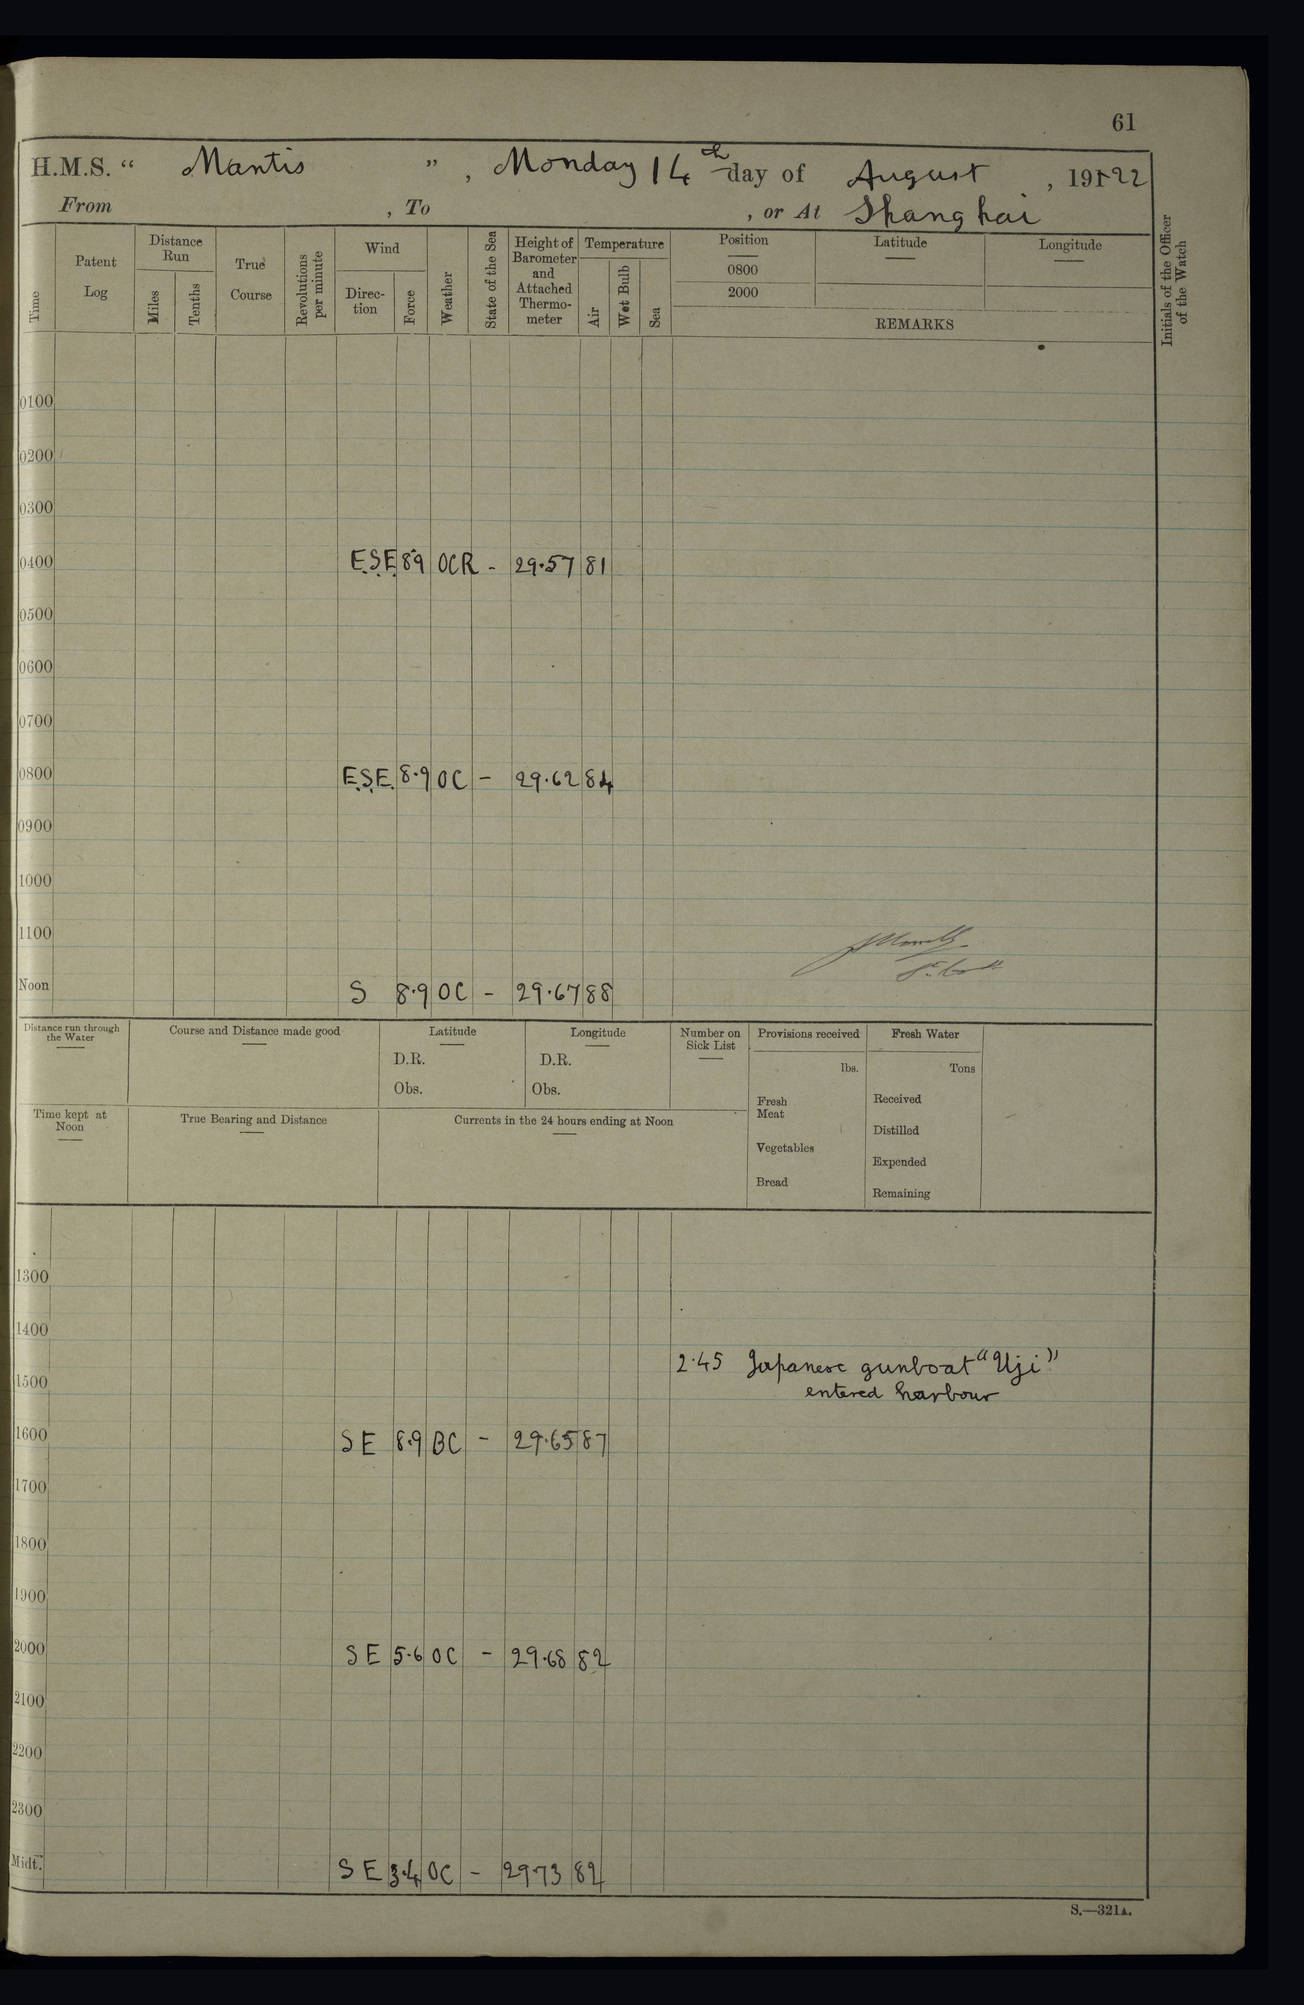 61
H.M.S. “ Mantis ”, Monday 14th day of August, 1922
From , To , or At Shanghai
Time
Patent Log
Distance Run
Miles
Tenths
True Course
Revolutions per minute
Wind
Direc-tion
Force
Weather
State of the Sea
Height of Barometer and Attached Thermo-meter
Temperature
Air
Wet Bulb
Sea
Position
Latitude
Longitude
0800
2000
REMARKS
Initials of the Officer of the Watch
0100
0200
0300
0400 E.S.E. 8.9 OCR - 29.57 81
0500
0600
0700
0800 E.S.E. 8.9 OC - 29.62 84
0900
1000
1100
Noon S 8.9 OC - 29.67 88
Distance run through the Water
Course and Distance made good
Latitude
D.R.
Obs.
Longitude
D.R.
Obs.
Number on Sick List
Provisions received
lbs.
Fresh Meat
Vegetables
Bread
Fresh Water
Tons
Received
Distilled
Expended
Remaining
Time kept at Noon
True Bearing and Distance
Currents in the 24 hours ending at Noon
1300
1400
2.45 Japanese gunboat “Uji”
1500 entered harbour
1600 SE 8.9 BC - 29.65 87
1700
1800
1900
2000 SE 5.6 OC - 29.68 82
2100
2200
2300
Midt. SE 3.4 OC - 2973 82
S.—321A.